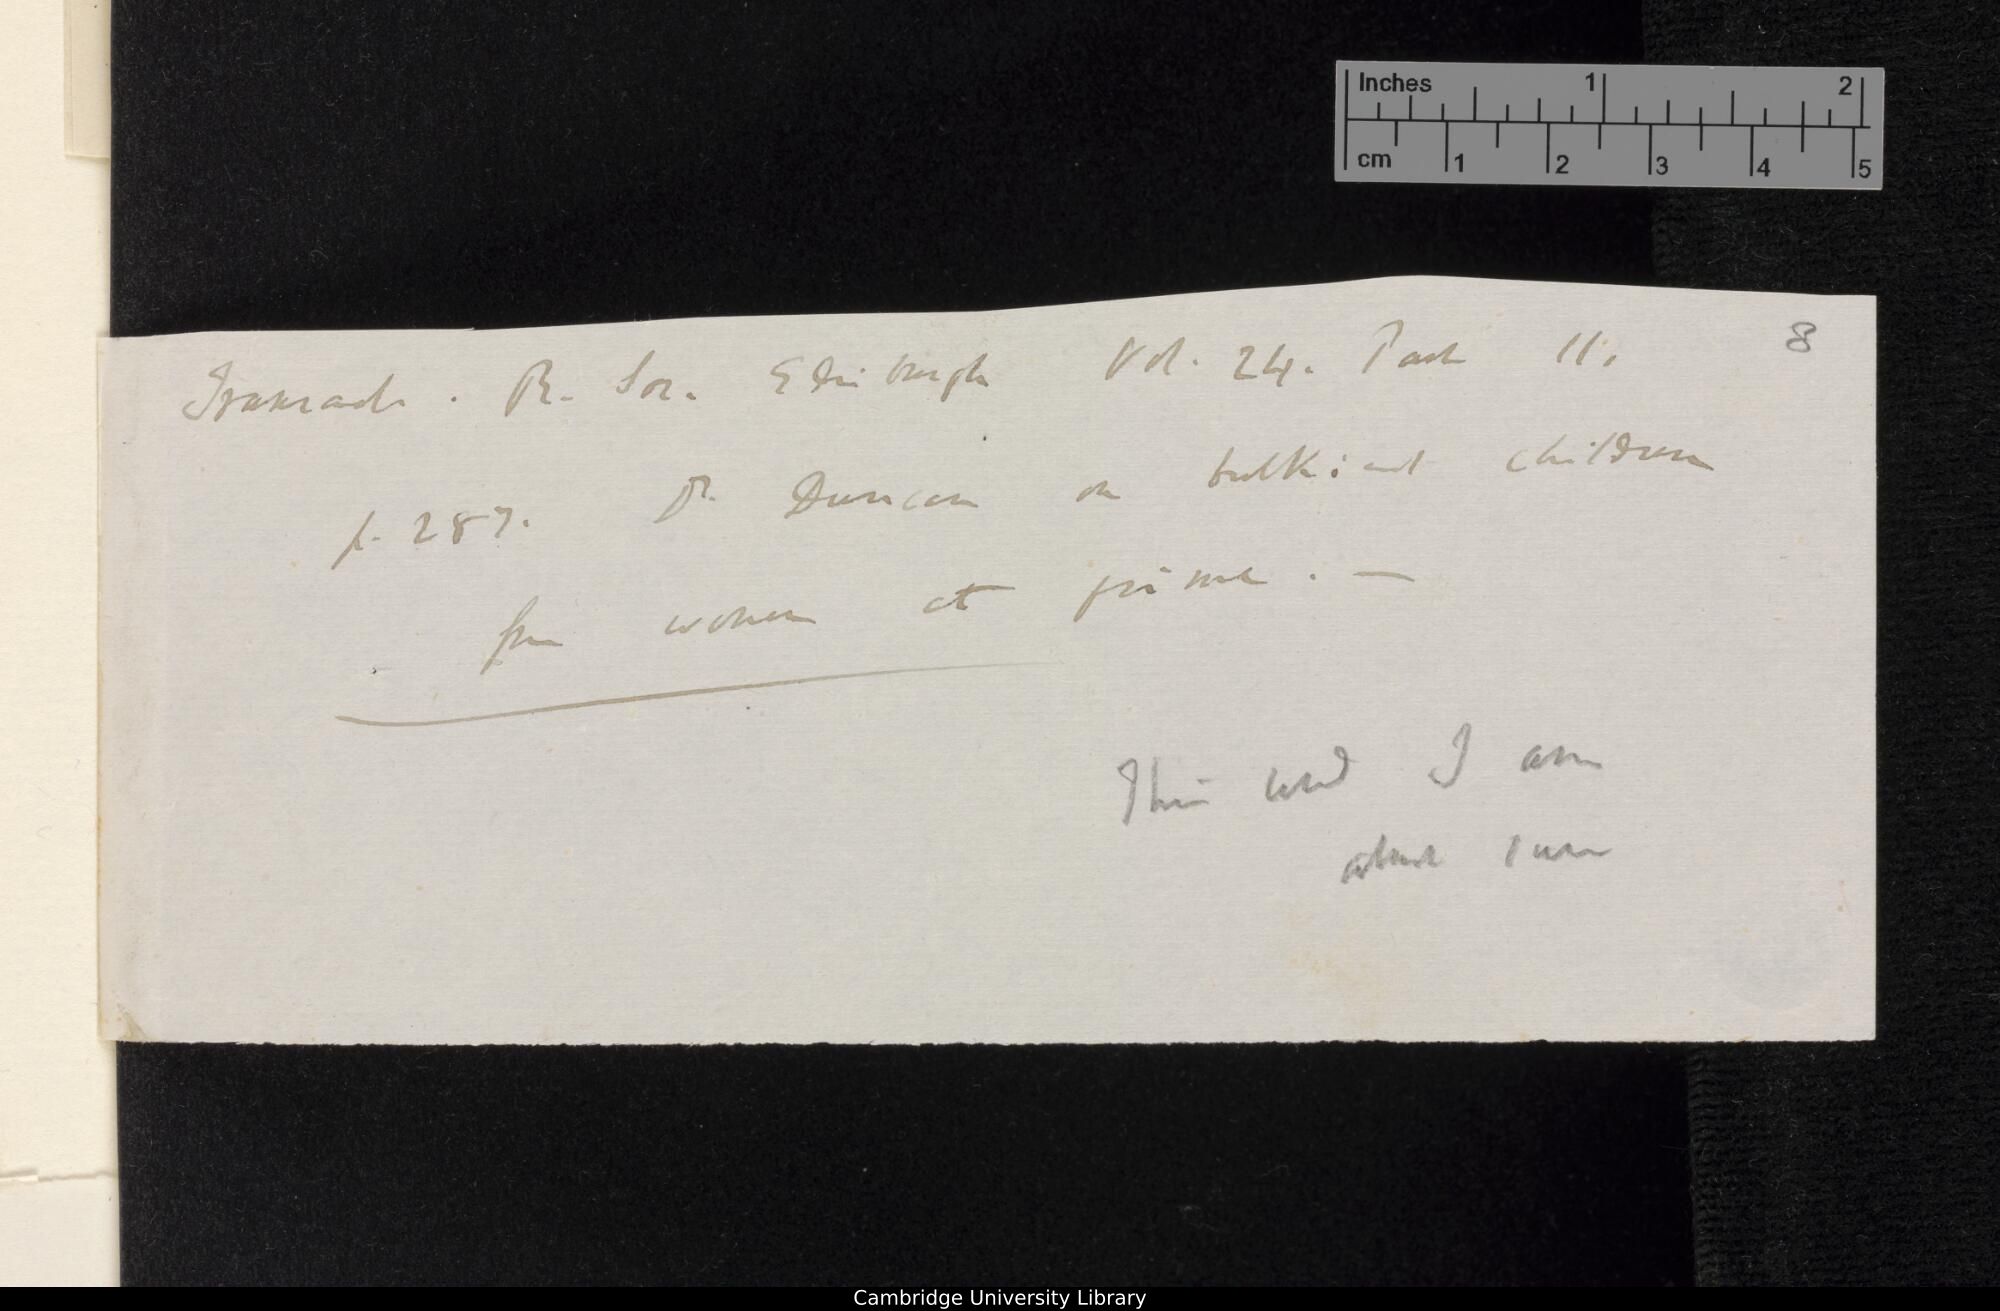 Inches 1 2
cm 1 2 3 4 5
8
Transact. R. Soc. Edinburgh Vol. 24. Part II.
p. 287. Dr. Duncan on bulkiest children
from women at prime. —
This I am
about
Cambridge University Library